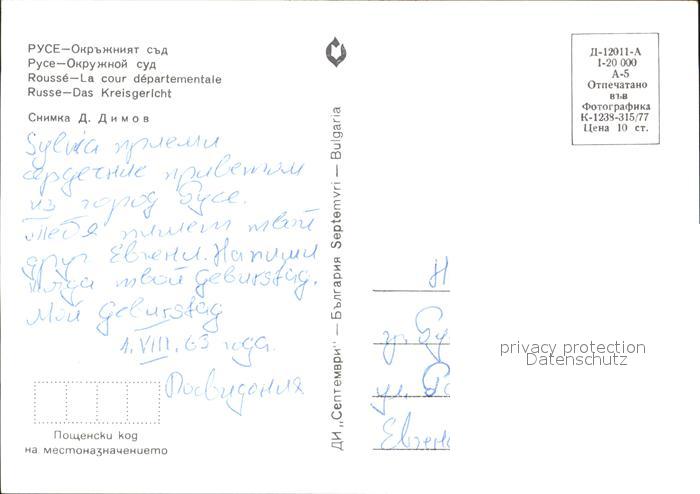 РУСЕ—Окръжният съд
Русе—Окружной суд
Roussé—La cour départementale
Russe—Das Kreisgericht
Снимка Д. Димов
Sylvia приеми
сердечние приветам
из город Русе.
Тебя пишет твой
друг Евгени. Напиши
когда твой Geburstag.
Мой Geburstag
1. VIII. 63 года.
Досвидания
Пощенски код
на местоназначението
ДИ „Септември" — България Septemvri — Bulgaria
Д-12011-А
I-20 000
А-5
Отпечатано
във
Фотографика
К-1238-315/77
Цена 10 ст.
Н
гр. Ру
ул.
Евгени
privacy protection
Datenschutz